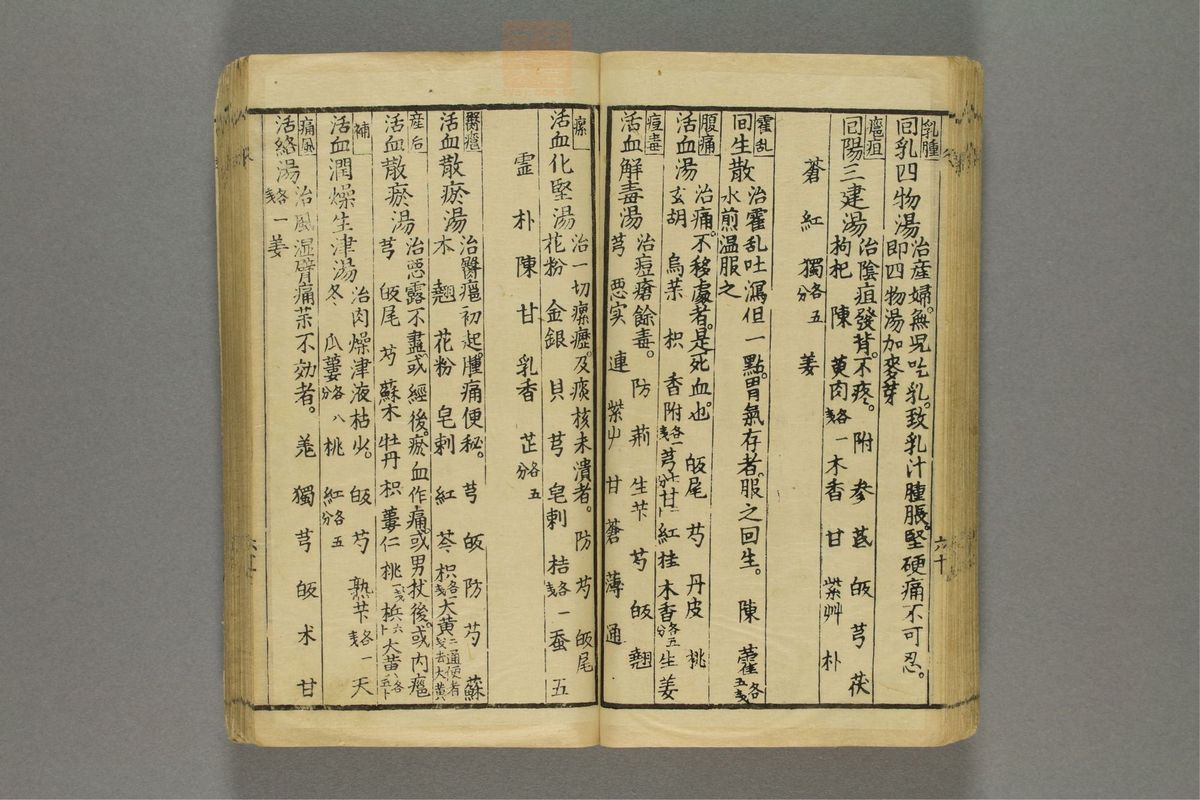 乳腫
回乳四物湯 治産婦無児吃乳。致乳汁腫脹。堅硬痛不可忍。
即四物湯加麥芽
癰疽
回陽三建湯 治陰疽發背。不疼。 附 参 茋 皈 芎 茯
枸杞 陳 萸肉各一戔 木香 甘 紫艸 朴
蒼 紅 獨各五分 姜
霍乱
回生散 治霍乱吐瀉但一點。胃氣存者。服之回生。 陳 藿各五戔
水煎温服之
腹痛
活血湯 治痛。不移處者。是死血也。 皈尾 芍 丹皮 桃
玄胡 烏茱 枳 香附各一戔 芎 甘 紅 桂 木香各五分 生姜
痘毒
活血解毒湯 治痘瘡餘毒。 防 荊 生芐 芍 皈 翹
芎 悪实 連 紫艸 甘 蒼 薄 通
瘰
活血化堅湯 治一切瘰癧。及痰核未潰者。 防 芍 皈尾
花粉 金銀 貝 芎 皂刺 桔各一戔 蚕 五
霊 朴 陳 甘 乳香 芷各五分
臀癰
活血散瘀湯 治臀癰初起。腫痛便秘。 芎 皈 防 芍 蘇
木 翹 花粉 皂刺 紅 芩 枳各一戔 大黄二戔 通便者去大黄
産后
活血散瘀湯 治悪露不盡。或經後。瘀血作痛。或男杖後。或内癰
芎 皈尾 芍 蘇木 牡丹 枳 蔞仁 桃一戔 梹六卜 大黄
補
活血潤燥生津湯 治内燥津液枯少。 皈 芍 熟芐各一戔 天
冬 瓜蔞各八分 桃 紅各五分
痛風
活絡湯 治風湿臂痛茱不効者。 羗 獨 芎 皈 朮 甘
各一戔 姜
六十